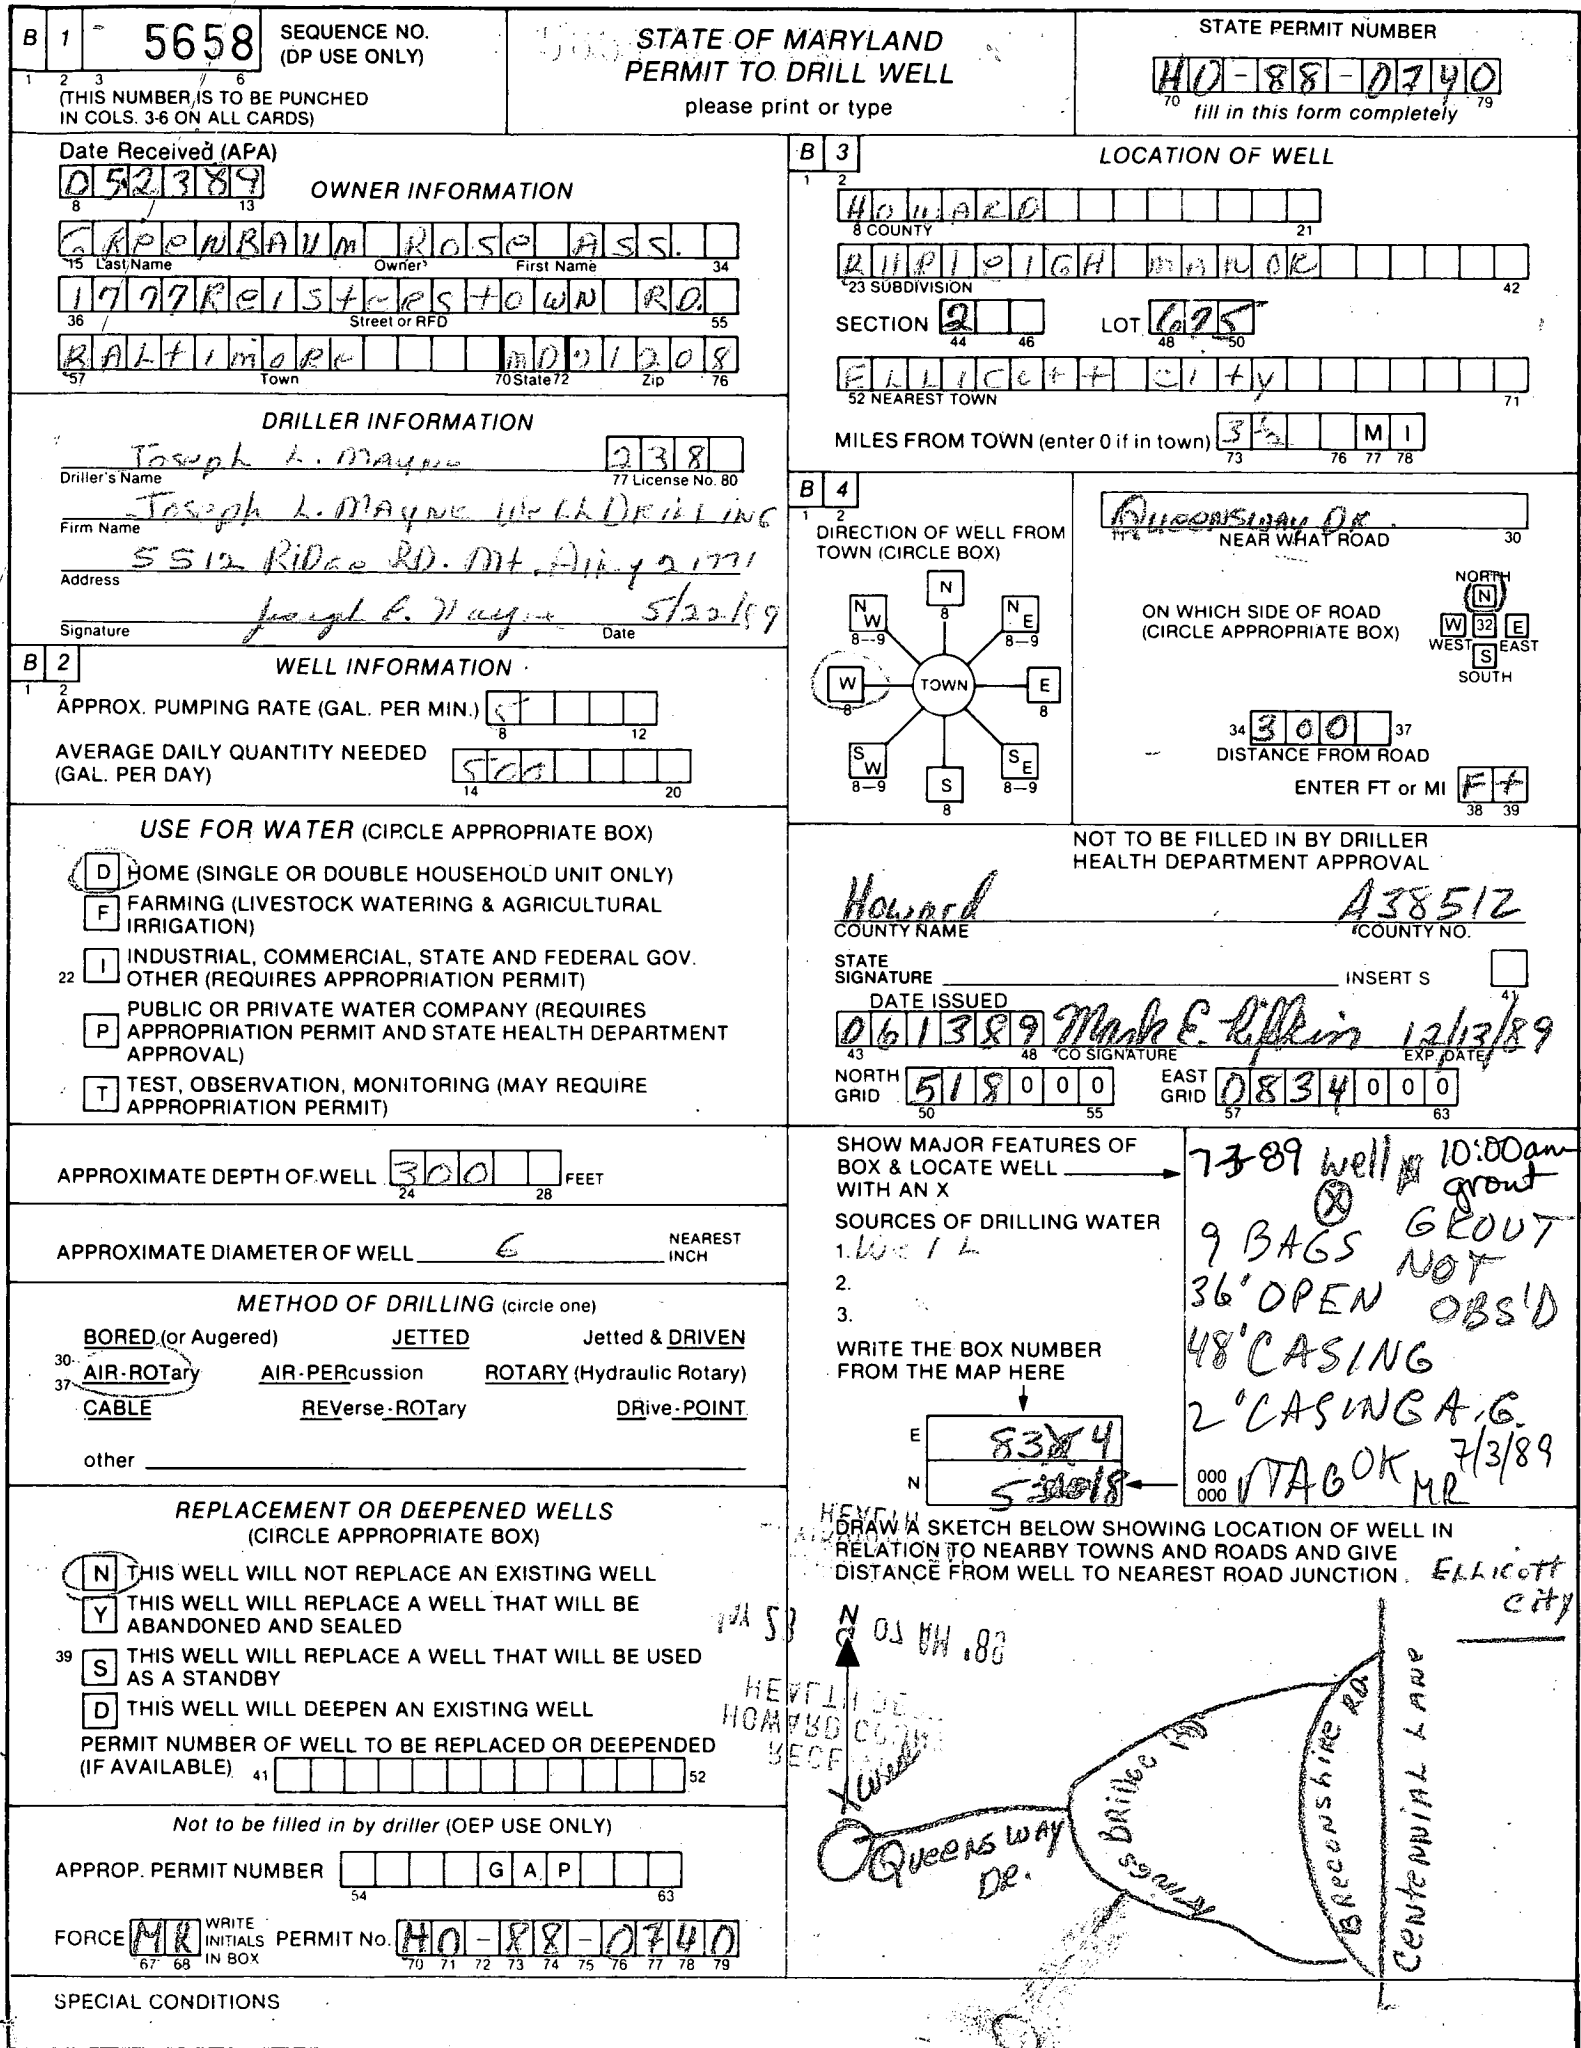 B 1 5658 SEQUENCE NO. (DP USE ONLY)
1 2 3 6
(THIS NUMBER IS TO BE PUNCHED
IN COLS. 3-6 ON ALL CARDS)
STATE OF MARYLAND
PERMIT TO DRILL WELL
please print or type
STATE PERMIT NUMBER
HO-88-0740
70 79
fill in this form completely
Date Received (APA)
052389
8 13
OWNER INFORMATION
GREENBAUM ROSE ASS.
15 Last Name Owner First Name 34
1777 Reisterstown RD.
36 Street or RFD 55
BALtimore MD 21208
57 Town 70 State 72 Zip 76
DRILLER INFORMATION
Joseph L. Mayne 238
Driller's Name 77 License No. 80
Joseph L. Mayne Well Drilling
Firm Name
5512 Ridge RD. Mt. Airy 21771
Address
Joseph L. Mayne 5/22/89
Signature Date
B 2 WELL INFORMATION
1 2
APPROX. PUMPING RATE (GAL. PER MIN.) 5
8 12
AVERAGE DAILY QUANTITY NEEDED
(GAL. PER DAY) 500
14 20
USE FOR WATER (CIRCLE APPROPRIATE BOX)
D HOME (SINGLE OR DOUBLE HOUSEHOLD UNIT ONLY)
F FARMING (LIVESTOCK WATERING & AGRICULTURAL
IRRIGATION)
22 I INDUSTRIAL, COMMERCIAL, STATE AND FEDERAL GOV.
OTHER (REQUIRES APPROPRIATION PERMIT)
P PUBLIC OR PRIVATE WATER COMPANY (REQUIRES
APPROPRIATION PERMIT AND STATE HEALTH DEPARTMENT
APPROVAL)
T TEST, OBSERVATION, MONITORING (MAY REQUIRE
APPROPRIATION PERMIT)
APPROXIMATE DEPTH OF WELL 300 FEET
24 28
APPROXIMATE DIAMETER OF WELL 6 NEAREST INCH
METHOD OF DRILLING (circle one)
BORED (or Augered) JETTED Jetted & DRIVEN
30 AIR-ROTary AIR-PERcussion ROTARY (Hydraulic Rotary)
37 CABLE REVerse-ROTary DRive-POINT
other
REPLACEMENT OR DEEPENED WELLS
(CIRCLE APPROPRIATE BOX)
N THIS WELL WILL NOT REPLACE AN EXISTING WELL
Y THIS WELL WILL REPLACE A WELL THAT WILL BE
ABANDONED AND SEALED
39 S THIS WELL WILL REPLACE A WELL THAT WILL BE USED
AS A STANDBY
D THIS WELL WILL DEEPEN AN EXISTING WELL
PERMIT NUMBER OF WELL TO BE REPLACED OR DEEPENDED
(IF AVAILABLE) 41 52
Not to be filled in by driller (OEP USE ONLY)
APPROP. PERMIT NUMBER G A P
54 63
FORCE MR WRITE INITIALS IN BOX PERMIT No. HO-88-0740
67 68 70 71 72 73 74 75 76 77 78 79
SPECIAL CONDITIONS
B 3 LOCATION OF WELL
1 2
HOWARD
8 COUNTY 21
BURLEIGH MANOR
23 SUBDIVISION 42
SECTION 2 LOT 675
44 46 48 50
ELLICott City
52 NEAREST TOWN 71
MILES FROM TOWN (enter 0 if in town) 3 1/2 M I
73 76 77 78
B 4
1 2
DIRECTION OF WELL FROM
TOWN (CIRCLE BOX)
N 8
NW 8-9
NE 8-9
W 8
TOWN
E 8
SW 8-9
S 8
SE 8-9
Queensway DR.
NEAR WHAT ROAD 30
ON WHICH SIDE OF ROAD
(CIRCLE APPROPRIATE BOX)
NORTH
N
W 32 E
WEST EAST
S
SOUTH
34 300 37
DISTANCE FROM ROAD
ENTER FT or MI Ft
38 39
NOT TO BE FILLED IN BY DRILLER
HEALTH DEPARTMENT APPROVAL
Howard A38512
COUNTY NAME COUNTY NO.
STATE
SIGNATURE INSERT S
41
DATE ISSUED
061389 Mark E. Rifkin 12/13/89
43 48 CO SIGNATURE EXP. DATE
NORTH GRID 518000 EAST GRID 0834000
50 55 57 63
SHOW MAJOR FEATURES OF
BOX & LOCATE WELL
WITH AN X
SOURCES OF DRILLING WATER
1. Well
2.
3.
WRITE THE BOX NUMBER
FROM THE MAP HERE
E 834
N 518
7-3-89 well 10:00am
grout
X
9 BAGS GROUT
NOT
36' OPEN OBS'D
48' CASING
2' CASING A.G.
000
000 √TAG OK MR 7/3/89
DRAW A SKETCH BELOW SHOWING LOCATION OF WELL IN
RELATION TO NEARBY TOWNS AND ROADS AND GIVE
DISTANCE FROM WELL TO NEAREST ROAD JUNCTION.
ELLICOTT
City
N
X Well
Queens WAY
DR.
Kings Bridge RD.
Breconshire RD.
CENTENNIAL LANE